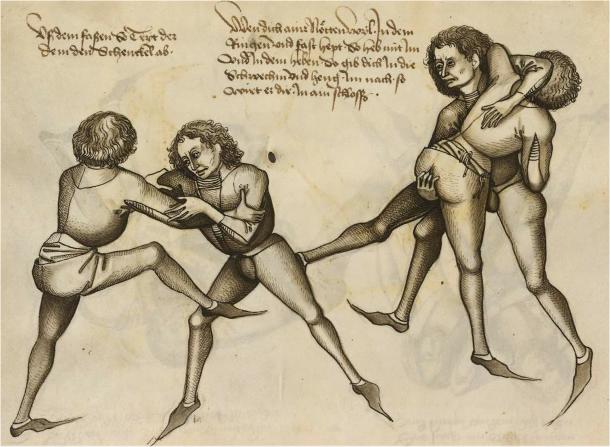 Uß dem faßen So Tritt der
Dem den Schenckel ab ·
Wen dich ainer Nötten wil · In dem
Ringen vnd fast hept So heb mit Im
Vnd In dem heben So gib dich In die
Schwechin vnd heng Im nach so
wirt er dir In ain schloss ·